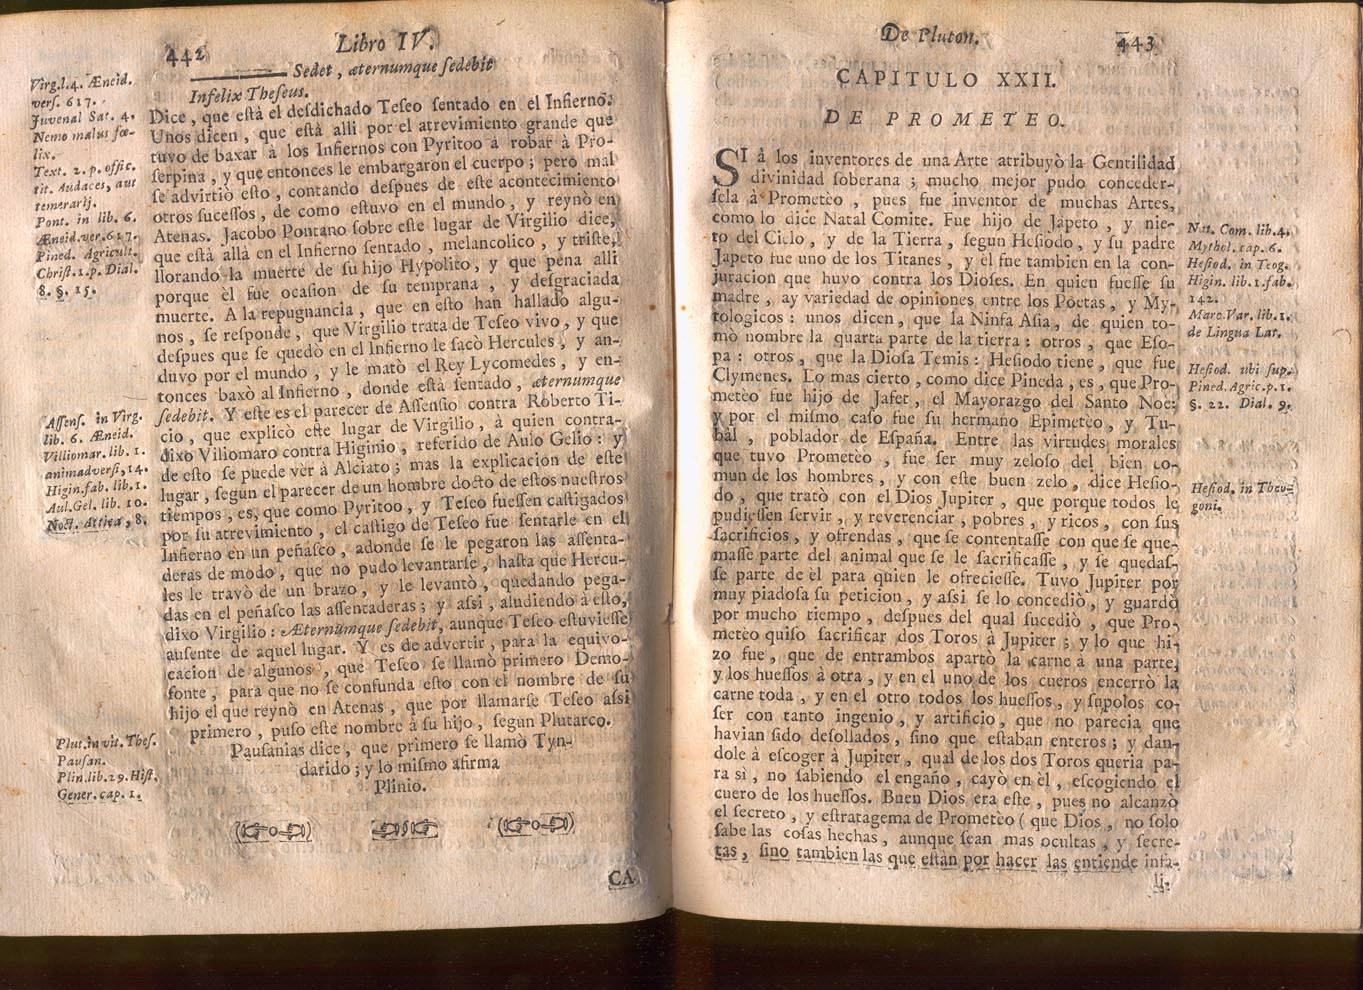 442
Libro IV.
Sedet, æternumque ſedebit
Infelix Theſeus.
Dice, que eſtà el deſdichado Teſeo ſentado en el Infierno.
Unos dicen, que eſtà alli por el atrevimiento grande que
tuvo de baxar à los Infiernos con Pyritoo à robar à Pro-
ſerpina, y que entonces le embargaron el cuerpo; pero mal
ſe advirtiò eſto, contando deſpues de eſte acontecimiento
otros ſuceſſos, de como eſtuvo en el mundo, y reynò en
Atenas. Jacobo Pontano ſobre eſte lugar de Virgilio dice,
que eſtà allà en el Infierno ſentado, melancolico, y triſte,
llorando la muerte de ſu hijo Hypolito, y que pena alli
porque èl fue ocaſion de ſu temprana, y deſgraciada
muerte. A la repugnancia, que en eſto han hallado algu-
nos, ſe reſponde, que Virgilio trata de Teſeo vivo, y que
deſpues que ſe quedò en el Infierno le ſacò Hercules, y an-
duvo por el mundo, y le matò el Rey Lycomedes, y en-
tonces baxò al Infierno, donde eſtà ſentado, æternumque
ſedebit. Y eſte es el parecer de Aſſenſio contra Roberto Ti-
cio, que explicò eſte lugar de Virgilio, à quien contra-
dixo Viliomaro contra Higinio, referido de Aulo Gelio: y
de eſto ſe puede vèr à Alciato; mas la explicacion de eſte
lugar, ſegun el parecer de un hombre docto de eſtos nueſtros
tiempos, es, que como Pyritoo, y Teſeo fueſſen caſtigados
por ſu atrevimiento, el caſtigo de Teſeo fue ſentarle en el
Infierno en un peñaſco, adonde ſe le pegaron las aſſenta-
deras de modo, que no pudo levantarſe, haſta que Hercu-
les le travò de un brazo, y le levantò, quedando pega-
das en el peñaſco las aſſentaderas; y aſsi, aludiendo à eſto,
dixo Virgilio: Æternumque ſedebit, aunque Teſeo eſtuvieſſe
auſente de aquel lugar. Y es de advertir, para la equivo-
cacion de algunos, que Teſeo ſe llamò primero Demo-
fonte, para que no ſe confunda eſto con el nombre de ſu
hijo el que reynò en Atenas, que por llamarſe Teſeo aſsi
primero, puſo eſte nombre à ſu hijo, ſegun Plutarco.
Pauſanias dice, que primero ſe llamò Tyn-
darido; y lo miſmo afirma
Plinio.
CA
Virg.l.4. Æneid.
verſ. 617.
Juvenal Sat. 4.
Nemo malus fœ-
lix.
Text. 2. p. offic.
tit. Audaces, aut
temerarij.
Pont. in lib. 6.
Æneid.ver.617.
Pined. Agricult.
Chriſt.1.p. Dial.
8. §. 15.
Aſſenſ. in Virg.
lib. 6. Æneid.
Villiomar. lib. 1.
animadverſ, 14.
Higin.fab. lib. 1.
Aul.Gel. lib. 10.
Noct. Attica, 8.
Plut.in vit. Theſ.
Pauſan.
Plin.lib.29.Hiſt.
Gener. cap. 1.
De Pluton.
443
CAPITULO XXII.
DE PROMETEO.
SI à los inventores de una Arte atribuyò la Gentilidad
divinidad ſoberana; mucho mejor pudo conceder-
ſela à Prometèo, pues fue inventor de muchas Artes,
como lo dice Natal Comite. Fue hijo de Japeto, y nie-
to del Cielo, y de la Tierra, ſegun Heſiodo, y ſu padre
Japeto fue uno de los Titanes, y èl fue tambien en la con-
juracion que huvo contra los Dioſes. En quien fueſſe ſu
madre, ay variedad de opiniones entre los Poetas, y My-
tologicos: unos dicen, que la Ninfa Aſia, de quien to-
mò nombre la quarta parte de la tierra: otros, que Eſo-
pa: otros, que la Dioſa Temis: Heſiodo tiene, que fue
Clymenes. Lo mas cierto, como dice Pineda, es, que Pro-
metèo fue hijo de Jafet, el Mayorazgo del Santo Noe:
y por el miſmo caſo fue ſu hermano Epimeteo, y Tu-
bàl, poblador de Eſpaña. Entre las virtudes morales
que tuvo Prometèo, fue ſer muy zeloſo del bien co-
mun de los hombres, y con eſte buen zelo, dice Heſio-
do, que tratò con el Dios Jupiter, que porque todos le
pudieſſen ſervir, y reverenciar, pobres, y ricos, con ſus
ſacrificios, y ofrendas, que ſe contentaſſe con que ſe que-
maſſe parte del animal que ſe le ſacrificaſſe, y ſe quedaſ-
ſe parte de èl para quien le ofrecieſſe. Tuvo Jupiter por
muy piadoſa ſu peticion, y aſsi ſe lo concediò, y guardò
por mucho tiempo, deſpues del qual ſucediò, que Pro-
metèo quiſo ſacrificar dos Toros à Jupiter; y lo que hi-
zo fue, que de entrambos apartò la carne à una parte,
y los hueſſos à otra, y en el uno de los cueros encerrò la
carne toda, y en el otro todos los hueſſos, y ſupolos co-
ſer con tanto ingenio, y artificio, que no parecia que
havian ſido deſollados, ſino que eſtaban enteros; y dan-
dole à eſcoger à Jupiter, qual de los dos Toros queria pa-
ra sì, no ſabiendo el engaño, cayò en èl, eſcogiendo el
cuero de los hueſſos. Buen Dios era eſte, pues no alcanzò
el ſecreto, y eſtratagema de Prometèo (que Dios, no ſolo
ſabe las coſas hechas, aunque ſean mas ocultas, y ſecre-
tas, ſino tambien las que eſtàn por hacer las entiende infa-
li-
Nat. Com. lib.4.
Mythol. cap. 6.
Heſiod. in Teog.
Higin. lib.1.fab.
142.
Marc.Var. lib.1.
de Lingua Lat.
Heſiod. ubi ſup.
Pined. Agric.p.1.
§. 22. Dial. 9.
Heſiod. in Theo-
goni.